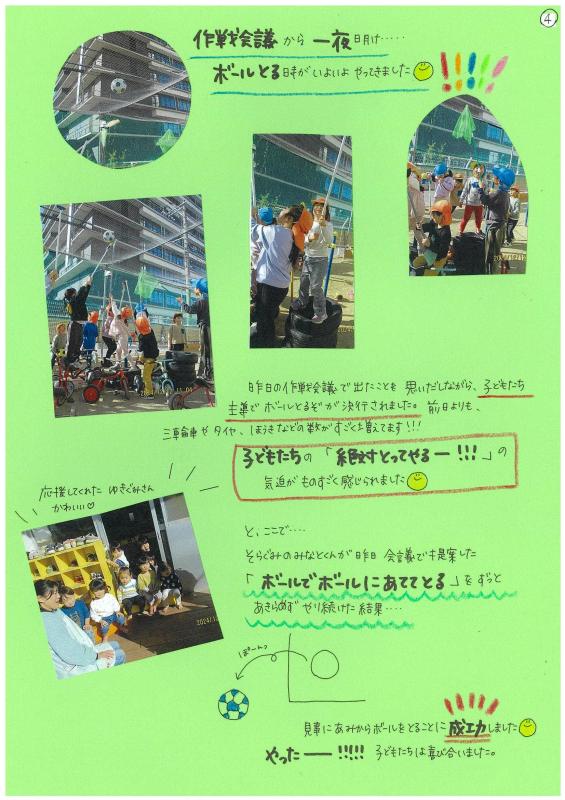 ④
作戦会議から一夜明け・・・・・
ボールとる日時がいよいよやってきました
!!!!!
昨日の作戦会議で出たことを思いだしながら、子どもたち
主導でボールとるぞが決行されました。前日よりも、
三輪車やタイヤ、ほうきなどの数がすごく増えてます!!!
子どもたちの「絶対とってやるー!!!」の
気迫がものすごく感じられました
応援してくれたゆきぐみさん
かわいい♡
と、ここで・・・・
そらぐみのみなとくんが昨日会議で提案した
「ボールでボールにあててとる」をずっと
あきらめずやり続けた結果・・・・
ぽーんっ
見事にあみからボールをとることに成功しました
やったー!!!!! 子どもたちは喜び合いました。